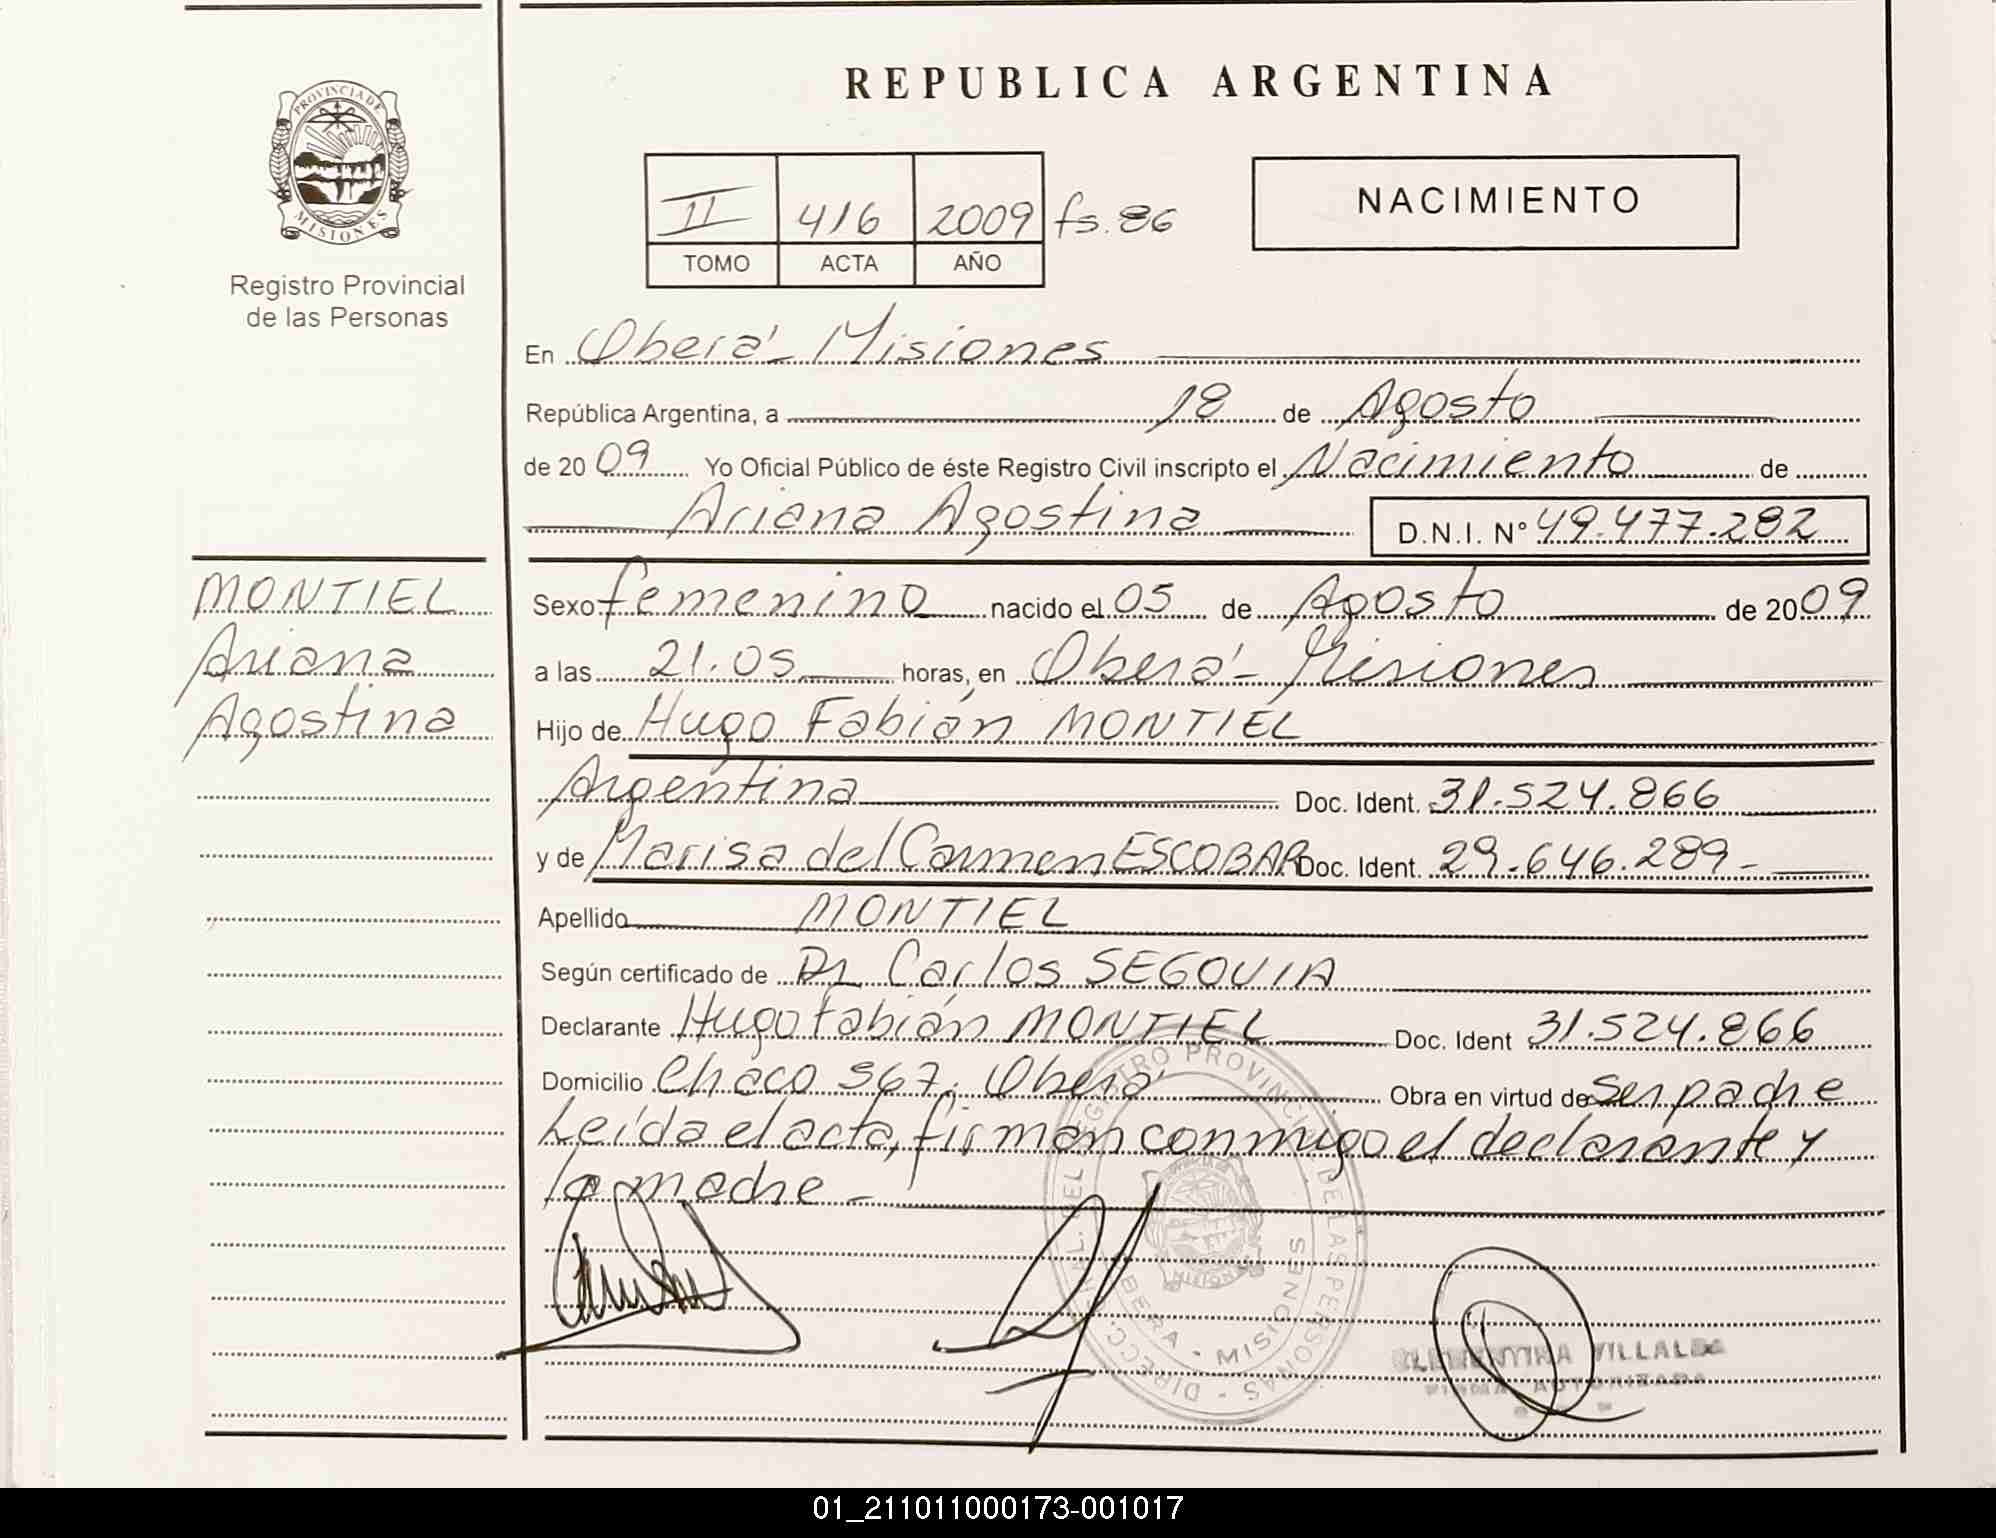 REPUBLICA ARGENTINA
PROVINCIA DE
MISIONES
Registro Provincial
de las Personas
II 416 2009 fs. 86
TOMO ACTA AÑO
NACIMIENTO
En Oberá - Misiones
República Argentina, a 18 de Agosto
de 2009 Yo Oficial Público de éste Registro Civil inscripto el Nacimiento de
Ariana Agostina D.N.I. Nº 49.477.282
MONTIEL
Ariana
Agostina
Sexo femenino nacido el 05 de Agosto de 2009
a las 21.05 horas, en Oberá - Misiones
Hijo de Hugo Fabián MONTIEL
Argentina Doc. Ident. 31.524.866
y de Marisa del Carmen ESCOBAR Doc. Ident. 29.646.289-
Apellido MONTIEL
Según certificado de Dr Carlos SEGOVIA
Declarante Hugo Fabián MONTIEL Doc. Ident 31.524.866
Domicilio Chaco 567. Oberá Obra en virtud de ser padre
Leída el acta, firman conmigo el declarante y
la madre -
DEL REGISTRO PROVINCIAL DE LAS PERSONAS - DIRECC.
MISIONES
OBERA - MISIONES
CLEMENTINA VILLALBA
FIRMA AUTORIZADA
01_211011000173-001017